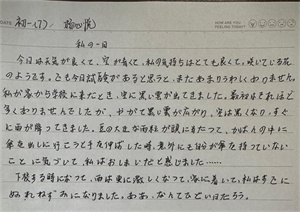 初一(7) 
HOW ARE YOU
FEELING TODAY?
私の一日
今日は天気が良くて、空が青くて、私の気持ちはとても良くて、咲いている花
のようです。でも今日試験があると思うと、またあまりうれしくありません。
私が家から学校に来たとき、空に黒い雲が出てきました。最初はそれほど
多くありませんでしたが、やがて黒い雲が広がり、空は黒くなり、すぐ
に雨が降ってきました。豆の大きな雨粒が顔に当たって、かばんの中に
傘を出しに行こうと手を伸ばした時、意外にも自分が傘を持っていない
ことに気づいて、私はおしまいだと感じました……
下校する時になって、雨は更に激しくなって、家に着いて、私はすでに
ぬれねずみになりました。ああ、なんてひどい日だろう。